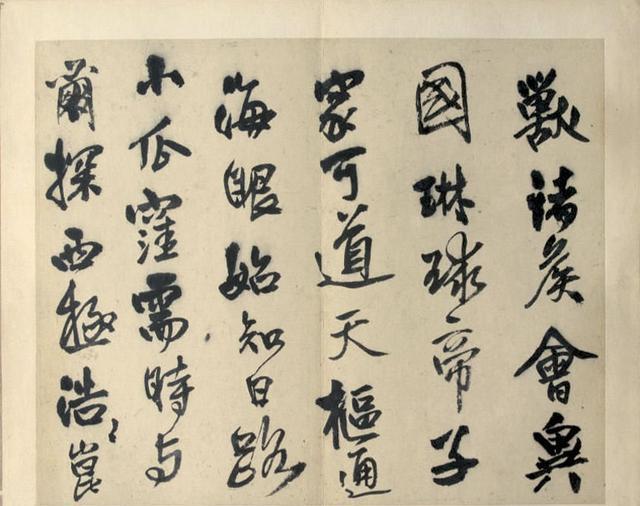 獸諸侯會異
國琳球帝子
家可道天樞通
海眼始知日路
小瓜窪需時与
爾探西極浩〻崑